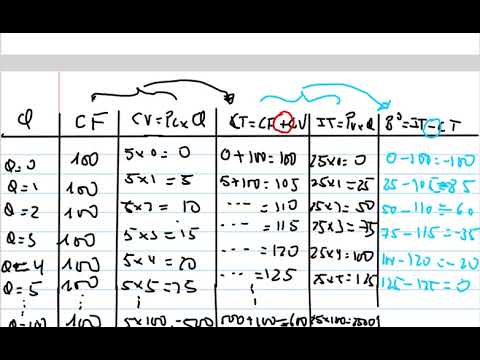 Q CF CV=PcxQ CT=CF+CV IT=PvxQ Bº=IT-CT
Q=0 100 5x0=0 0+100=100 25x0=0 0-100=-100
Q=1 100 5x1=5 5+100=105 25x1=25 25-105=-85
Q=2 100 5x2=10 ---=110 25x2=50 50-110=-60
Q=3 100 5x3=15 ---=115 25x3=75 75-115=-35
Q=4 100 5x4=20 ---=120 25x4=100 100-120=-20
Q=5 100 5x5=25 ---=125 25x5=125 125-125=0
Q=100 100 5x100=500 500+100=600 25x100=2500